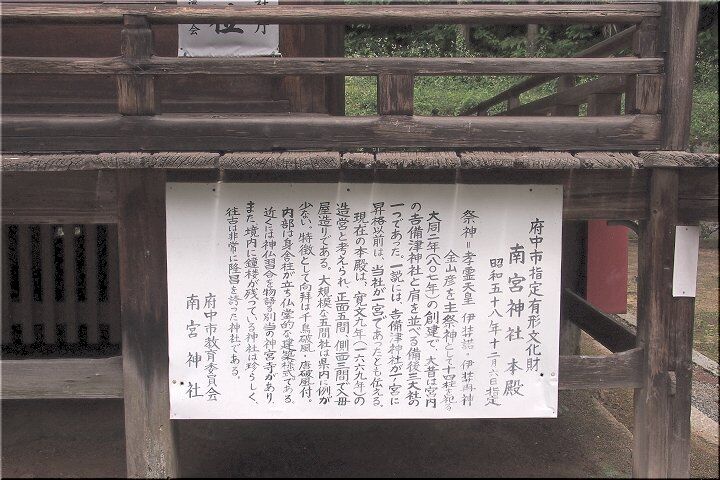 府中市指定有形文化財・
南宮神社 本殿
昭和五十八年十二月六日指定
祭神＝孝霊天皇 伊弉諾・伊弉冉神
金山彦を主祭神として十四柱を祀る。
大同二年(八〇七年)の創建で、大昔は宮内
の吉備津神社と肩を並べる備後三大社の
一つであった。一説には、吉備津神社が一宮に
昇格以前は、当社が一宮であったとも伝える。
現在の本殿は、寛文九年(一六六九年)の
造営と考えられ、正面五間、側面三間で入母
屋造りである。大規模な五間社は県内に例が
少ない。特徴として向拝は千鳥破風・唐破風付。
内部は身舎柱が立ち仏堂的な建築様式である。
近くには神仏習合を物語る別当の神宮寺があり、
また境内に鐘楼が残っている神社は珍らしく、
往古は非常に隆昌を誇った神社である。
府中市教育委員会
南宮神社